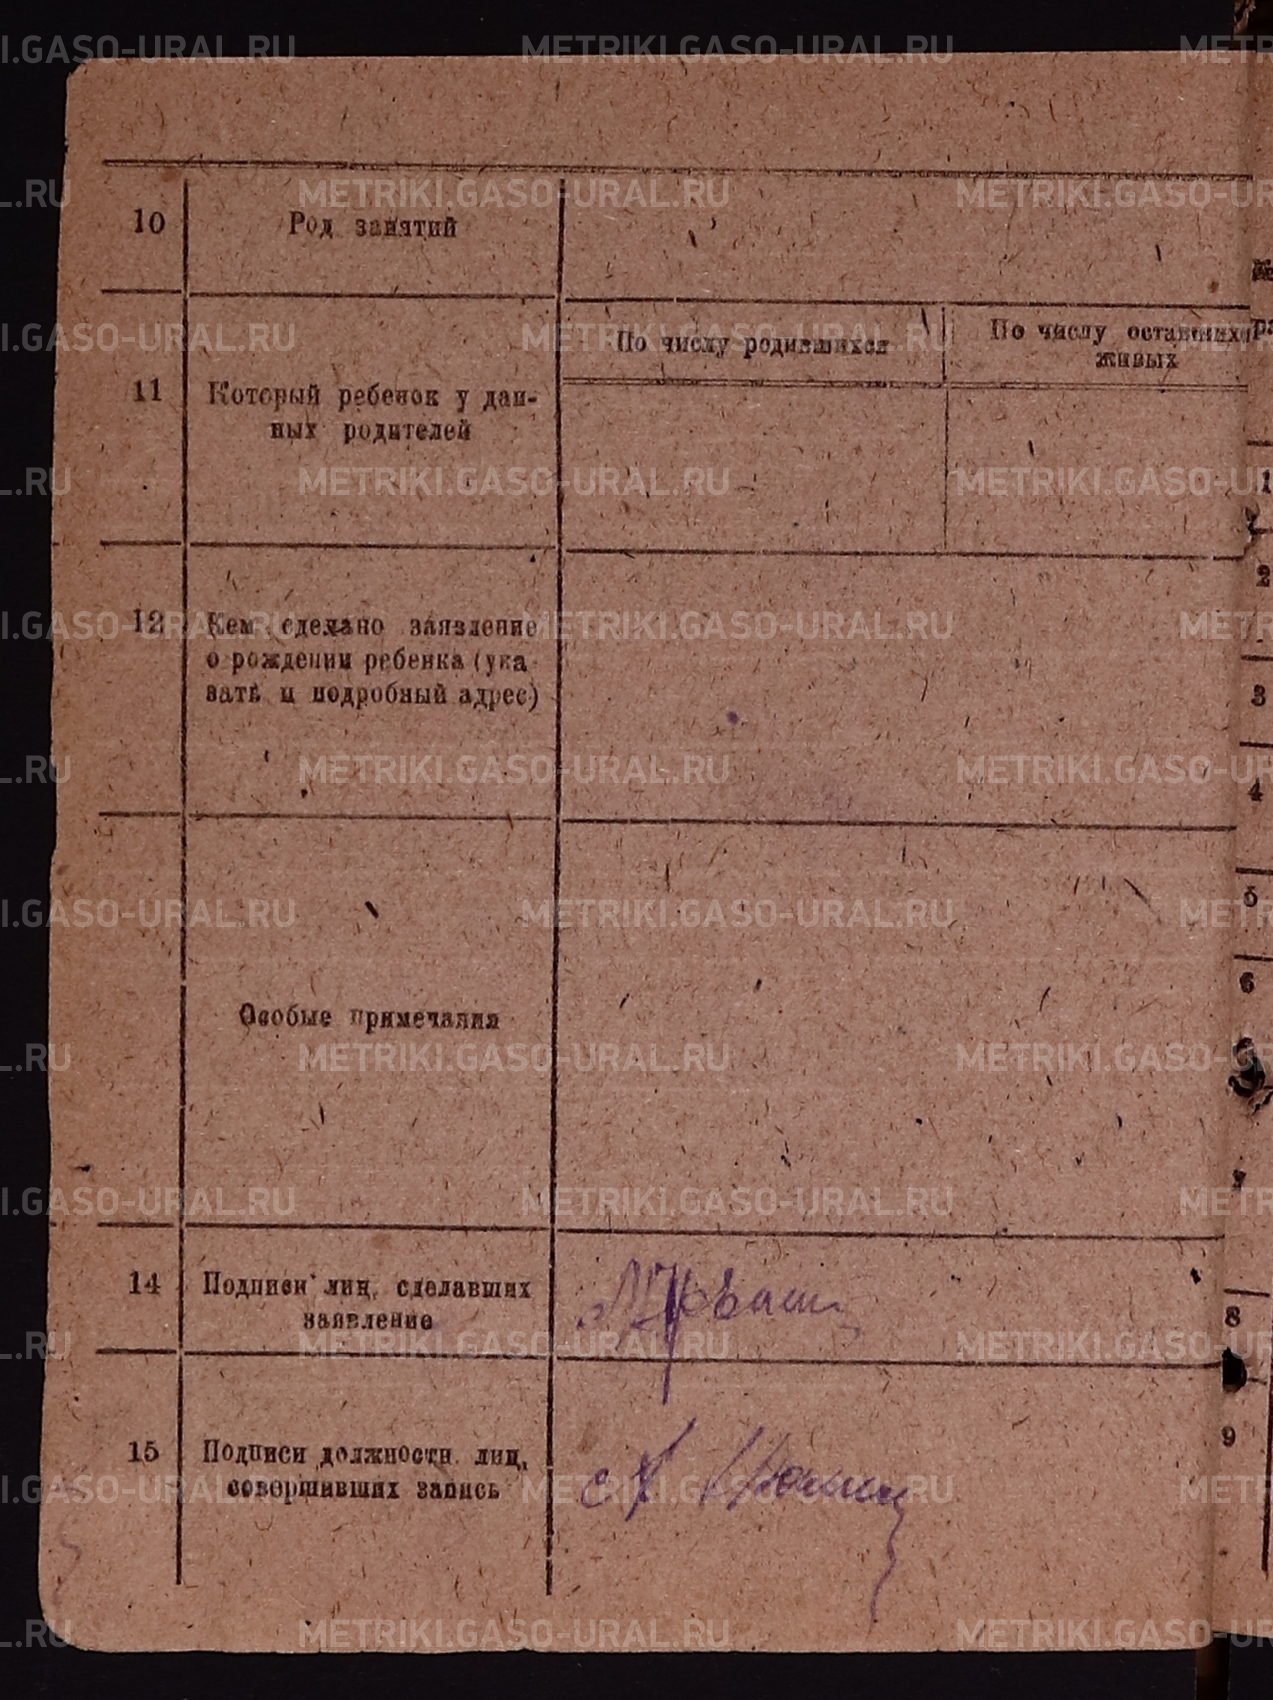 10 Род занятий
По числу родившихся
По числу оставшихся
живых
11 Который ребенок у дан-
ных родителей
12 Кем сделано заявление
о рождении ребенка (ука
зать и подробный адрес)
Особые примечания
14 Подписи лиц, сделавших
заявление
15 Подписи должности. лиц,
совершивших запись
1
2
3
4
5
6
7
8
9
METRIKI.GASO-URAL.RU